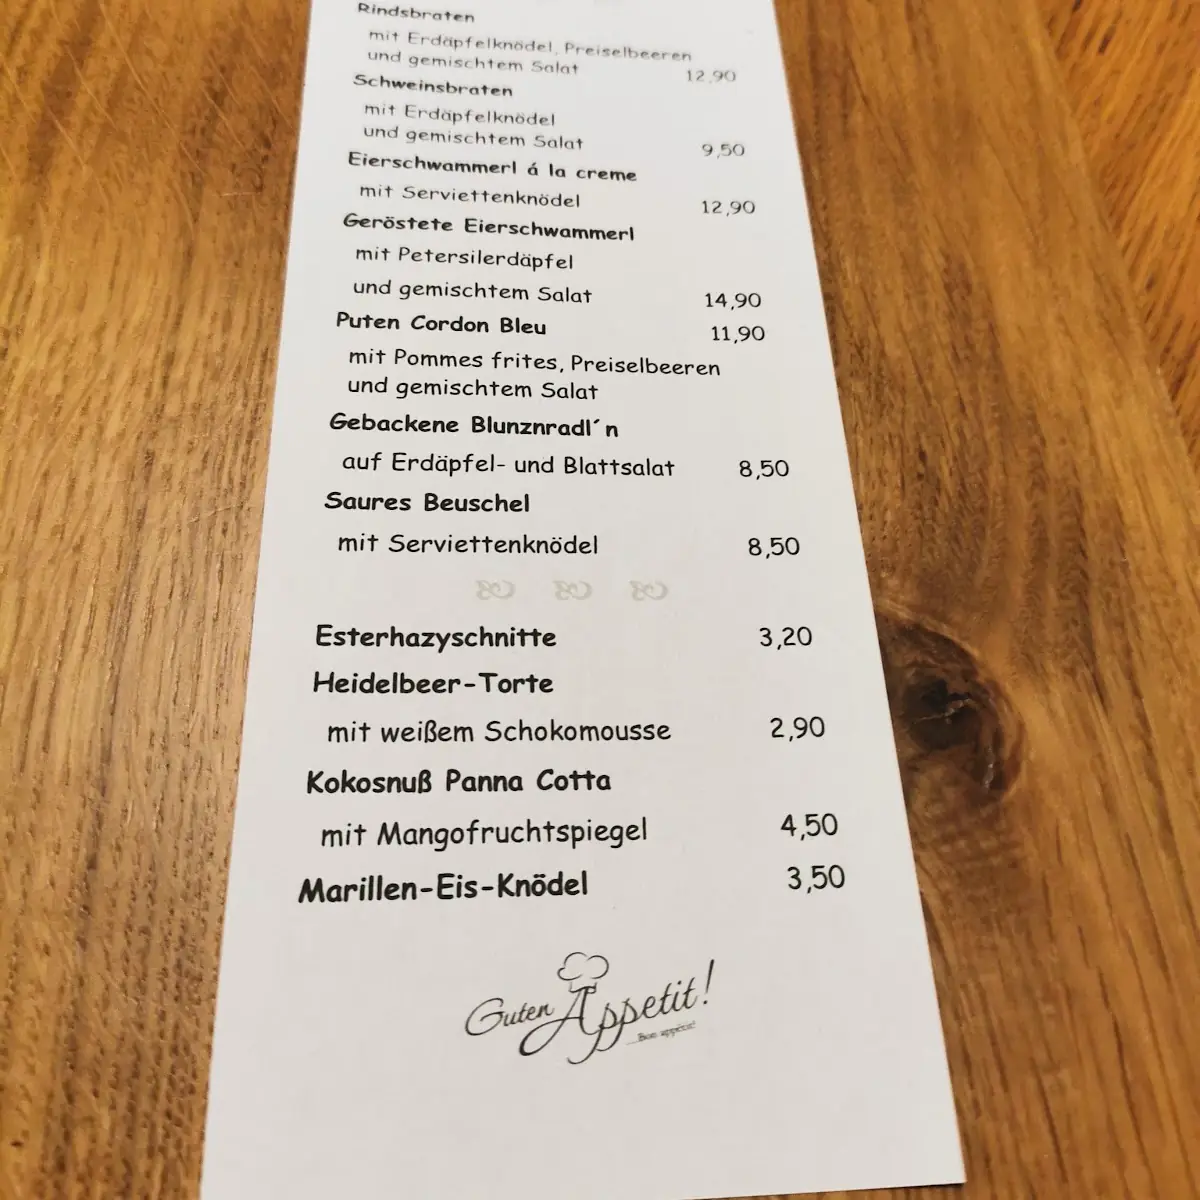 Rindsbraten
mit Erdäpfelknödel, Preiselbeeren
und gemischtem Salat 12,90
Schweinsbraten
mit Erdäpfelknödel
und gemischtem Salat 9,50
Eierschwammerl á la creme
mit Serviettenknödel 12,90
Geröstete Eierschwammerl
mit Petersilerdäpfel
und gemischtem Salat 14,90
Puten Cordon Bleu 11,90
mit Pommes frites, Preiselbeeren
und gemischtem Salat
Gebackene Blunznradl´n
auf Erdäpfel- und Blattsalat 8,50
Saures Beuschel
mit Serviettenknödel 8,50
Esterhazyschnitte 3,20
Heidelbeer-Torte
mit weißem Schokomousse 2,90
Kokosnuß Panna Cotta
mit Mangofruchtspiegel 4,50
Marillen-Eis-Knödel 3,50
Guten Appetit!
...Bon appétit!